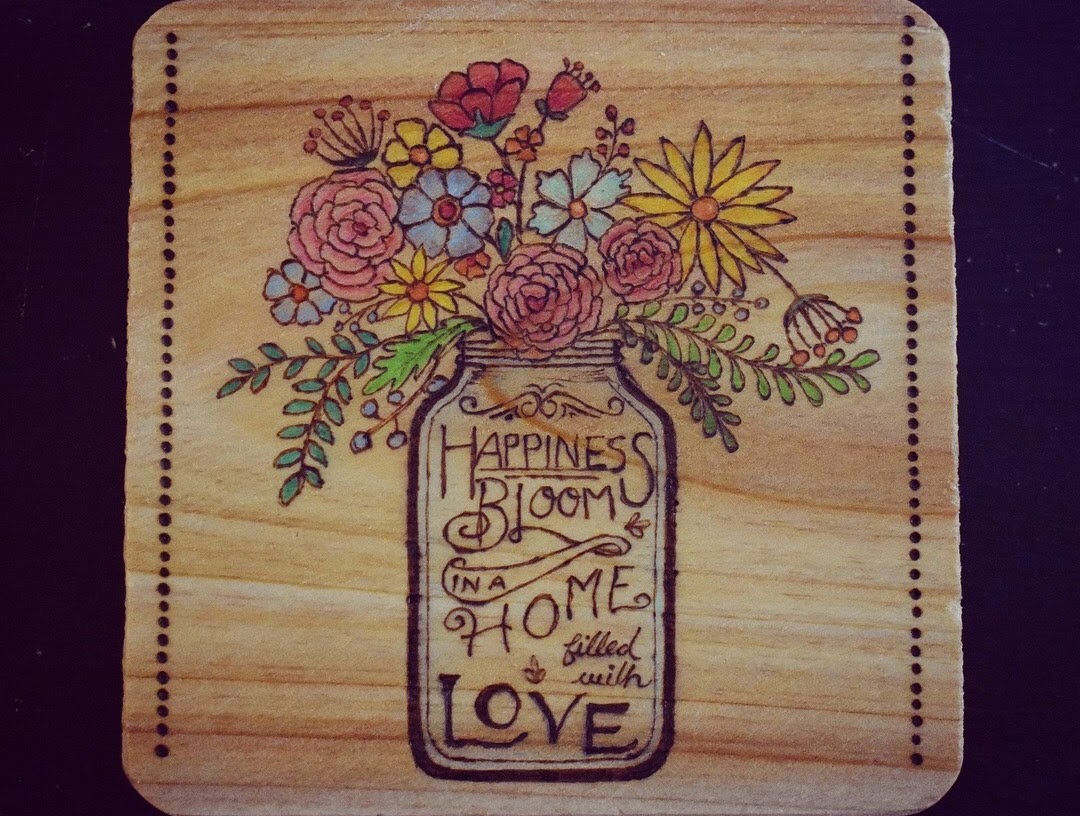 HAPPINESS
BLOOM
IN A
HOME
filled
with
LOVE